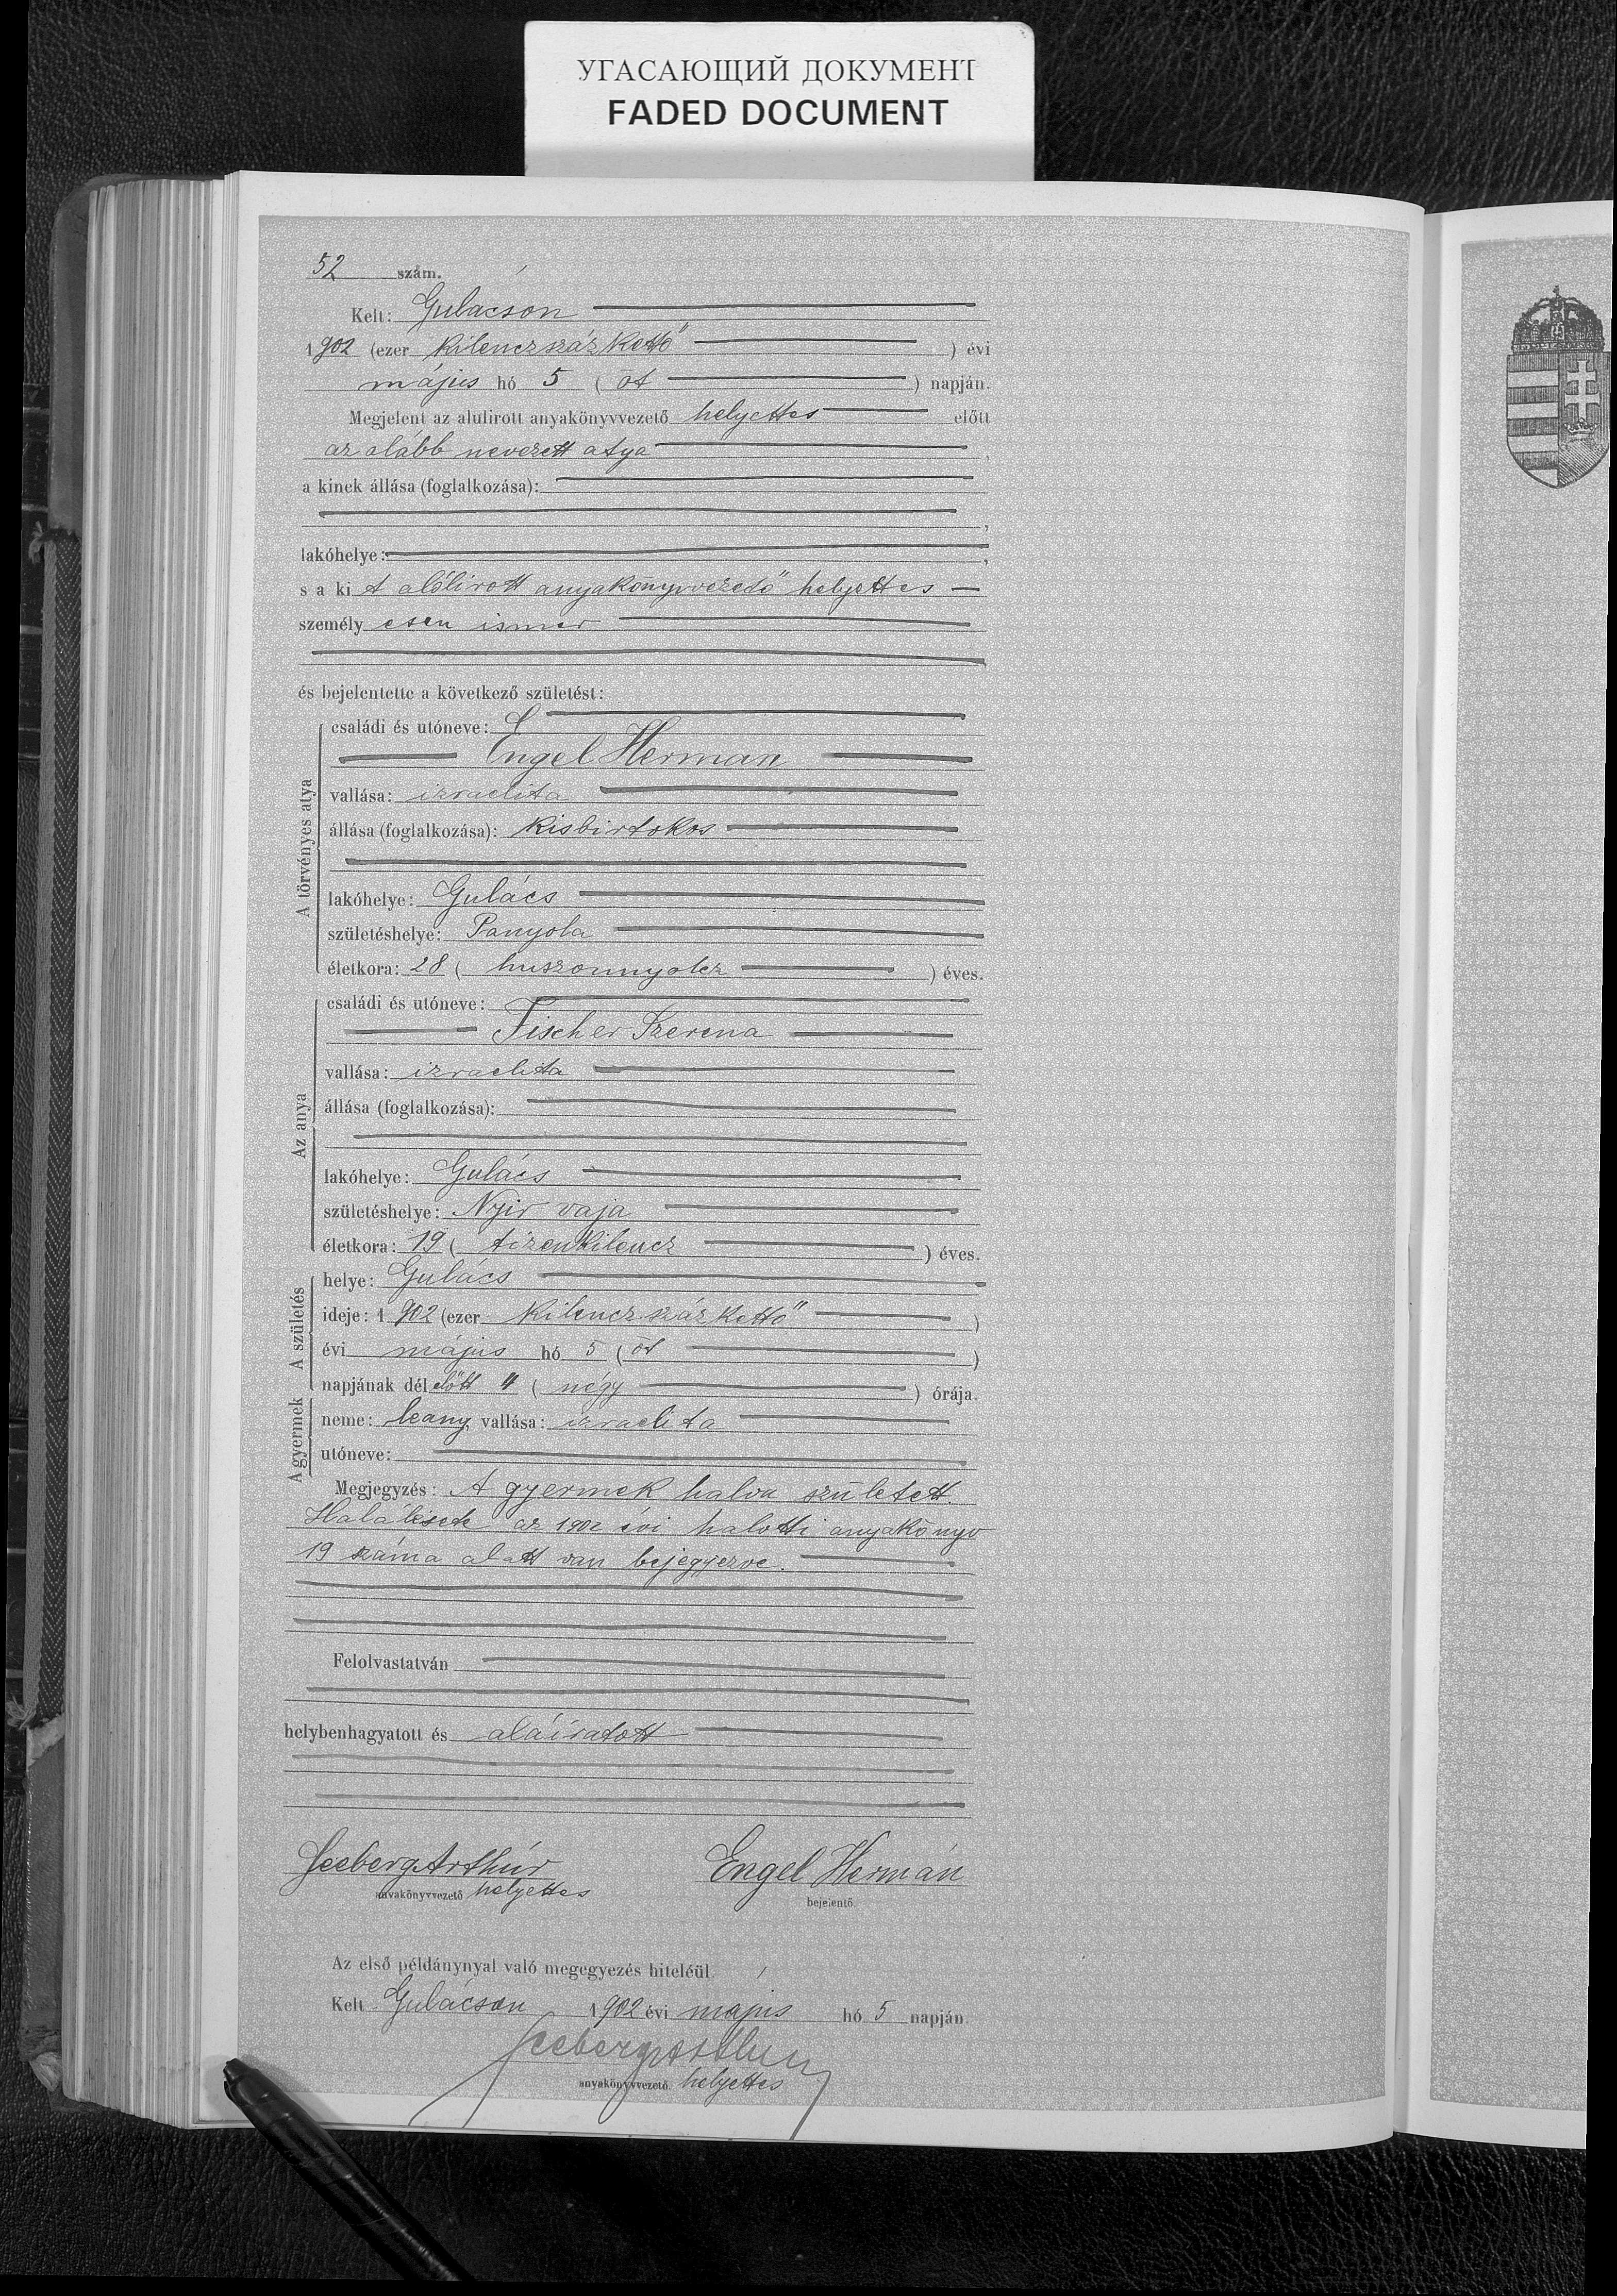 УГАСАЮЩИЙ ДОКУМЕНТ
FADED DOCUMENT
52 szám.
Kelt: Gulacson
1902 (ezer kilenczszázkettő) évi
május hó 5 (öt) napján.
Megjelent az alulirott anyakönyvvezető helyettes előtt
az alább nevezett atya,
a kinek állása (foglalkozása):
,
lakóhelye:,
s a kit alólirott anyakönyvvezető helyettes
személyesen ismer
és bejelentette a következő születést:
A törvényes atya
családi és utóneve:
Engel Herman
vallása: izraelita
állása (foglalkozása): kisbirtokos
lakóhelye: Gulács
születéshelye: Panyola
életkora: 28 (huszonnyolcz) éves.
Az anya
családi és utóneve:
Fischer Szerena
vallása: izraelita
állása (foglalkozása):
lakóhelye: Gulács
születéshelye: Nyir vaja
életkora: 19 (tizenkilencz) éves.
A születés
helye: Gulács
ideje: 1902 (ezer kilenczszázkettő)
évi május hó 5 (öt)
napjának délelőtt 4 (négy) órája.
A gyermek
neme: leany vallása: izraelita
utóneve:
Megjegyzés: A gyermek halva született.
az 1902 évi halotti anyakönyv
19 száma alatt van bejegyezve.
Felolvastatván
helybenhagyatott és aláiratott
Seeberg Arthúr Engel Hermán
anyakönyvvezető helyettes bejelentő.
Az első példánynyal való megegyezés hiteléül.
Kelt Gulácson 1902 évi majus hó 5 napján.
Seeberg Arthur
anyakönyvvezető. helyettes